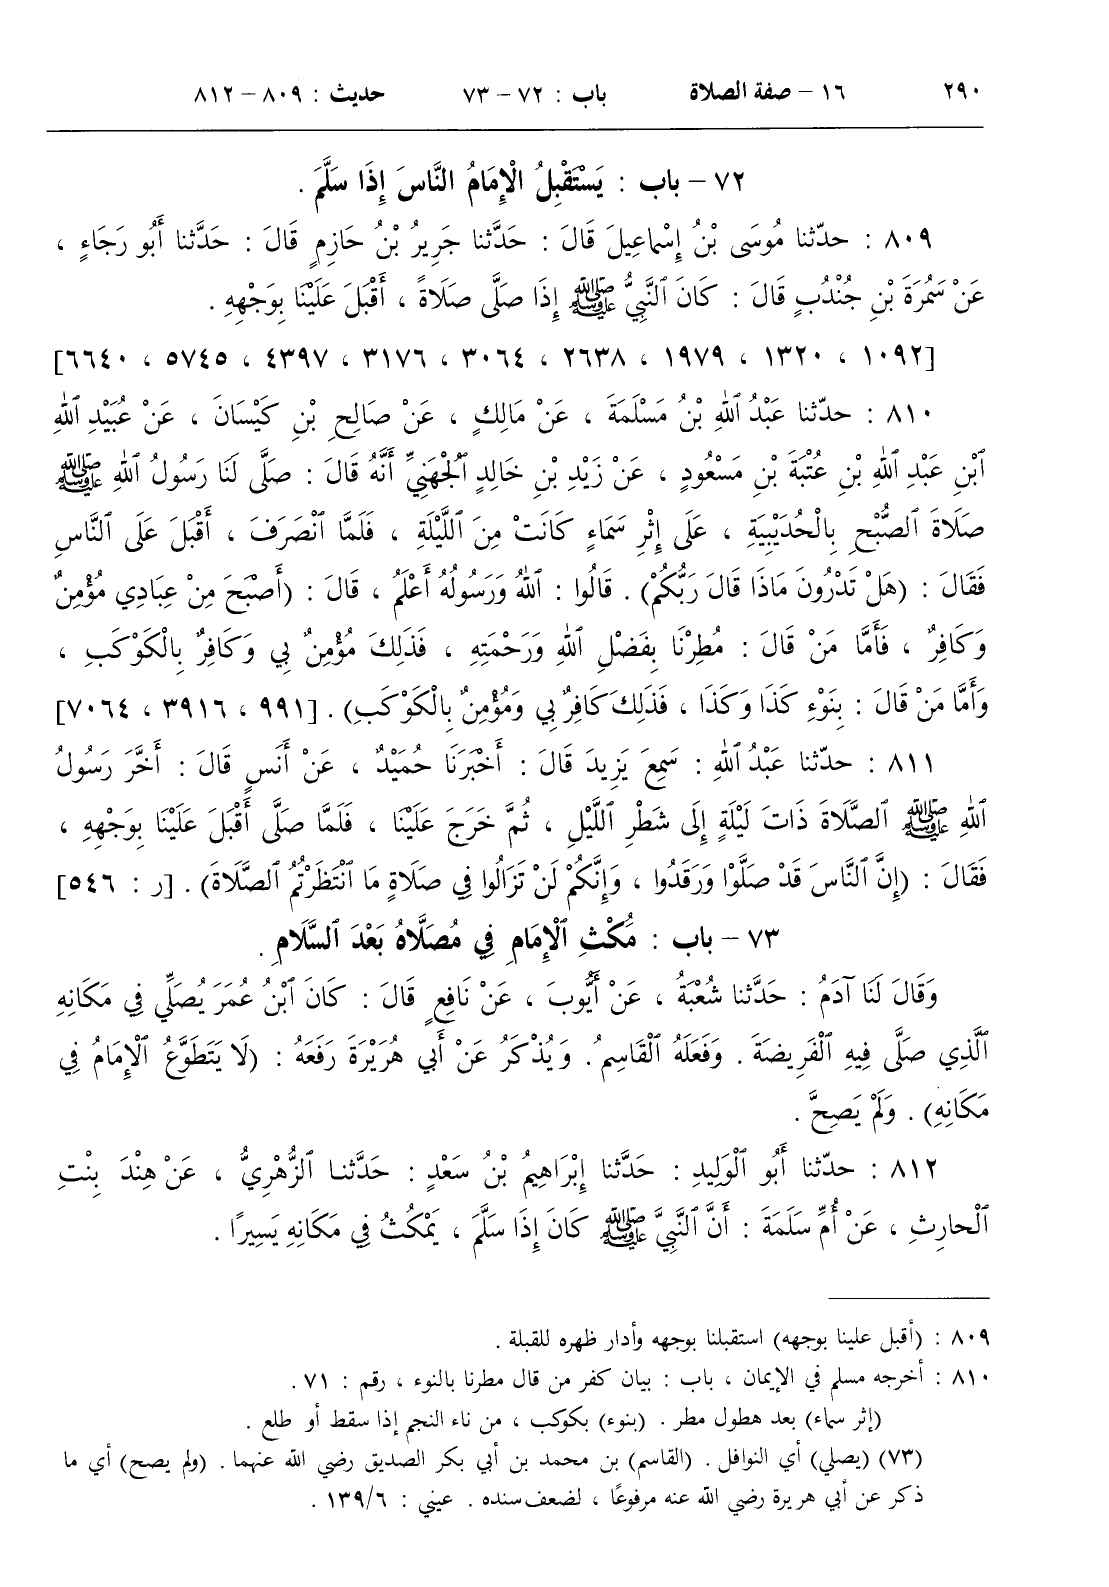 ٢٩٠ ١٦ – صفة الصلاة باب : ٧٢ – ٧٣ حديث : ٨٠٩ – ٨١٢
٧٢ – باب : يَسْتَقْبِلُ الْإِمَامُ النَّاسَ إِذَا سَلَّمَ .
٨٠٩ : حدّثنا مُوسَى بْنُ إِسْماعِيلَ قَالَ : حَدَّثَنا جَرِيرُ بْنُ حَازِمٍ قَالَ : حَدَّثَنا أَبُو رَجَاءٍ ،
عَنْ سَمُرَةَ بْنِ جُنْدُبٍ قَالَ : كَانَ ٱلنَّبِيُّ ﷺ إِذَا صَلَّى صَلَاةً ، أَقْبَلَ عَلَيْنَا بِوَجْهِهِ .
[١٠٩٢ ، ١٣٢٠ ، ١٩٧٩ ، ٢٦٣٨ ، ٣٠٦٤ ، ٣١٧٦ ، ٤٣٩٧ ، ٥٧٤٥ ، ٦٦٤٠]
٨١٠ : حدّثنا عَبْدُ ٱللهِ بْنُ مَسْلَمَةَ ، عَنْ مَالِكٍ ، عَنْ صَالِحِ بْنِ كَيْسَانَ ، عَنْ عُبَيْدِ ٱللهِ
ٱبْنِ عَبْدِ ٱللهِ بْنِ عُتْبَةَ بْنِ مَسْعُودٍ ، عَنْ زَيْدِ بْنِ خَالِدٍ ٱلْجُهَنِيِّ أَنَّهُ قَالَ : صَلَّى لَنَا رَسُولُ ٱللهِ ﷺ
صَلَاةَ ٱلصُّبْحِ بِالْحُدَيْبِيَةِ ، عَلَى إِثْرِ سَمَاءٍ كَانَتْ مِنَ ٱللَّيْلَةِ ، فَلَمَّا ٱنْصَرَفَ ، أَقْبَلَ عَلَى ٱلنَّاسِ
فَقَالَ : (هَلْ تَدْرُونَ مَاذَا قَالَ رَبُّكُمْ) . قَالُوا : ٱللهُ وَرَسُولُهُ أَعْلَمُ ، قَالَ : (أَصْبَحَ مِنْ عِبَادِي مُؤْمِنٌ
وَكَافِرٌ ، فَأَمَّا مَنْ قَالَ : مُطِرْنَا بِفَضْلِ ٱللهِ وَرَحْمَتِهِ ، فَذَلِكَ مُؤْمِنٌ بِي وَكَافِرٌ بِالْكَوْكَبِ ،
وَأَمَّا مَنْ قَالَ : بِنَوْءِ كَذَا وَكَذَا ، فَذَلِكَ كَافِرٌ بِي وَمُؤْمِنٌ بِالْكَوْكَبِ) . [٩٩١ ، ٣٩١٦ ، ٧٠٦٤]
٨١١ : حدّثنا عَبْدُ ٱللهِ : سَمِعَ يَزِيدَ قَالَ : أَخْبَرَنَا حُمَيْدٌ ، عَنْ أَنَسٍ قَالَ : أَخَّرَ رَسُولُ
ٱللهِ ﷺ ٱلصَّلَاةَ ذَاتَ لَيْلَةٍ إِلَى شَطْرِ ٱللَّيْلِ ، ثُمَّ خَرَجَ عَلَيْنَا ، فَلَمَّا صَلَّى أَقْبَلَ عَلَيْنَا بِوَجْهِهِ ،
فَقَالَ : (إِنَّ ٱلنَّاسَ قَدْ صَلَّوْا وَرَقَدُوا ، وَإِنَّكُمْ لَنْ تَزَالُوا فِي صَلَاةٍ مَا ٱنْتَظَرْتُمُ ٱلصَّلَاةَ) . [ر : ٥٤٦]
٧٣ – باب : مُكْثِ ٱلْإِمَامِ فِي مُصَلَّاهُ بَعْدَ ٱلسَّلَامِ .
وَقَالَ لَنَا آدَمُ : حَدَّثَنا شُعْبَةُ ، عَنْ أَيُّوبَ ، عَنْ نَافِعٍ قَالَ : كَانَ ٱبْنُ عُمَرَ يُصَلِّي فِي مَكَانِهِ
ٱلَّذِي صَلَّى فِيهِ ٱلْفَرِيضَةَ . وَفَعَلَهُ ٱلْقَاسِمُ . وَيُذْكَرُ عَنْ أَبِي هُرَيْرَةَ رَفَعَهُ : (لَا يَتَطَوَّعُ ٱلْإِمَامُ فِي
مَكَانِهِ) . وَلَمْ يَصِحَّ .
٨١٢ : حدّثنا أَبُو ٱلْوَلِيدِ : حَدَّثَنا إِبْرَاهِيمُ بْنُ سَعْدٍ : حَدَّثَنا ٱلزُّهْرِيُّ ، عَنْ هِنْدَ بِنْتِ
ٱلْحارِثِ ، عَنْ أُمِّ سَلَمَةَ : أَنَّ ٱلنَّبِيَّ ﷺ كَانَ إِذَا سَلَّمَ ، يَمْكُثُ فِي مَكَانِهِ يَسِيرًا .
٨٠٩ : (أقبل علينا بوجهه) استقبلنا بوجهه وأدار ظهره للقبلة .
٨١٠ : أخرجه مسلم في الإيمان ، باب : بيان كفر من قال مطرنا بالنوء ، رقم : ٧١ .
(إثر سماء) بعد هطول مطر . (بنوء) بكوكب ، من ناء النجم إذا سقط أو طلع .
(٧٣) (يصلي) أي النوافل . (القاسم) بن محمد بن أبي بكر الصديق رضي الله عنهما . (ولم يصح) أي ما
ذكر عن أبي هريرة رضي الله عنه مرفوعًا ، لضعف سنده . عيني : ١٣٩/٦ .